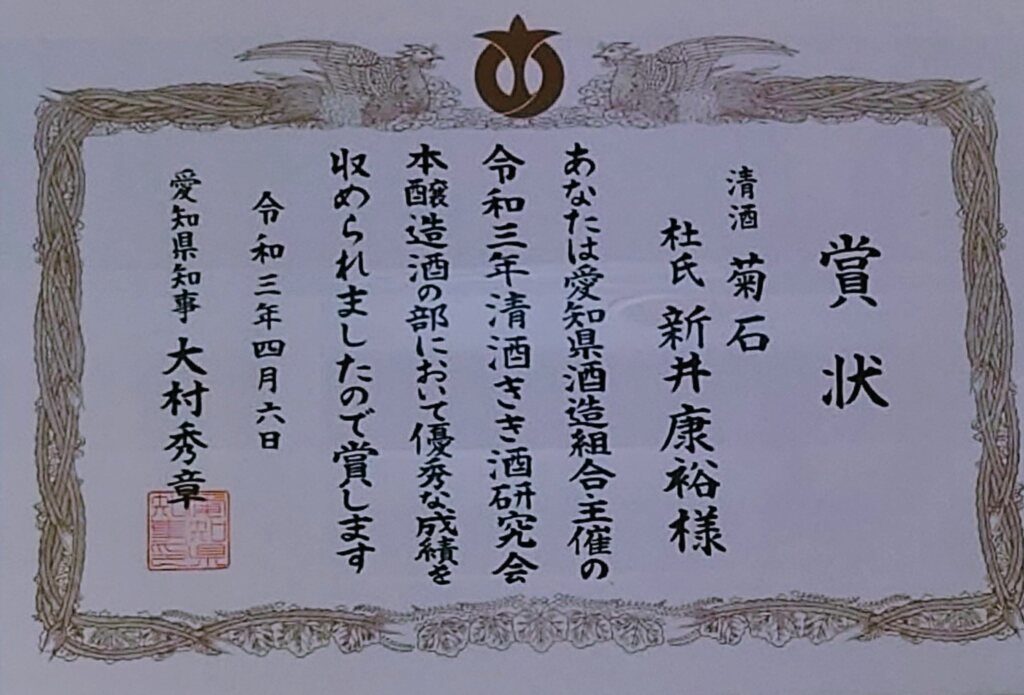 賞状
清酒 菊石
杜氏 新井康裕様
あなたは愛知県酒造組合主催の
令和三年清酒きき酒研究会
本醸造酒の部において優秀な成績を
収められましたので賞します
令和三年四月六日
愛知県知事 大村秀章